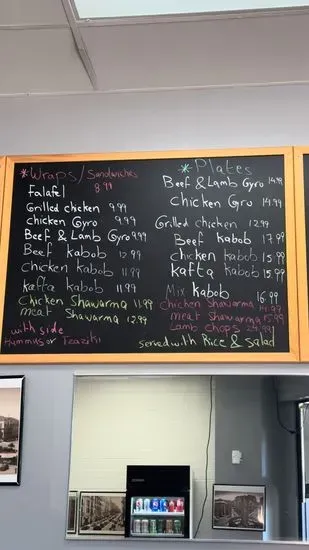 *Wraps/Sandwiches
8.99
Falafel
Grilled chicken 9.99
chicken Gyro 9.99
Beef & Lamb Gyro 9.99
Beef kabob 12.99
Chicken kabob 11.99
kafta kabob 11.99
Chicken Shawarma 11.99
meat Shawarma 12.99
with side
Hummus or Tzaziki
*Plates
Beef & Lamb Gyro 14.99
Chicken Gyro 14.99
Grilled chicken 12.99
Beef kabob 17.99
chicken kabob 15.99
kafta kabob 15.99
Mix kabob 16.99
Chicken Shawarma
meat Shawarma 15.99
Lamb chops 24.99
served with Rice & Salad